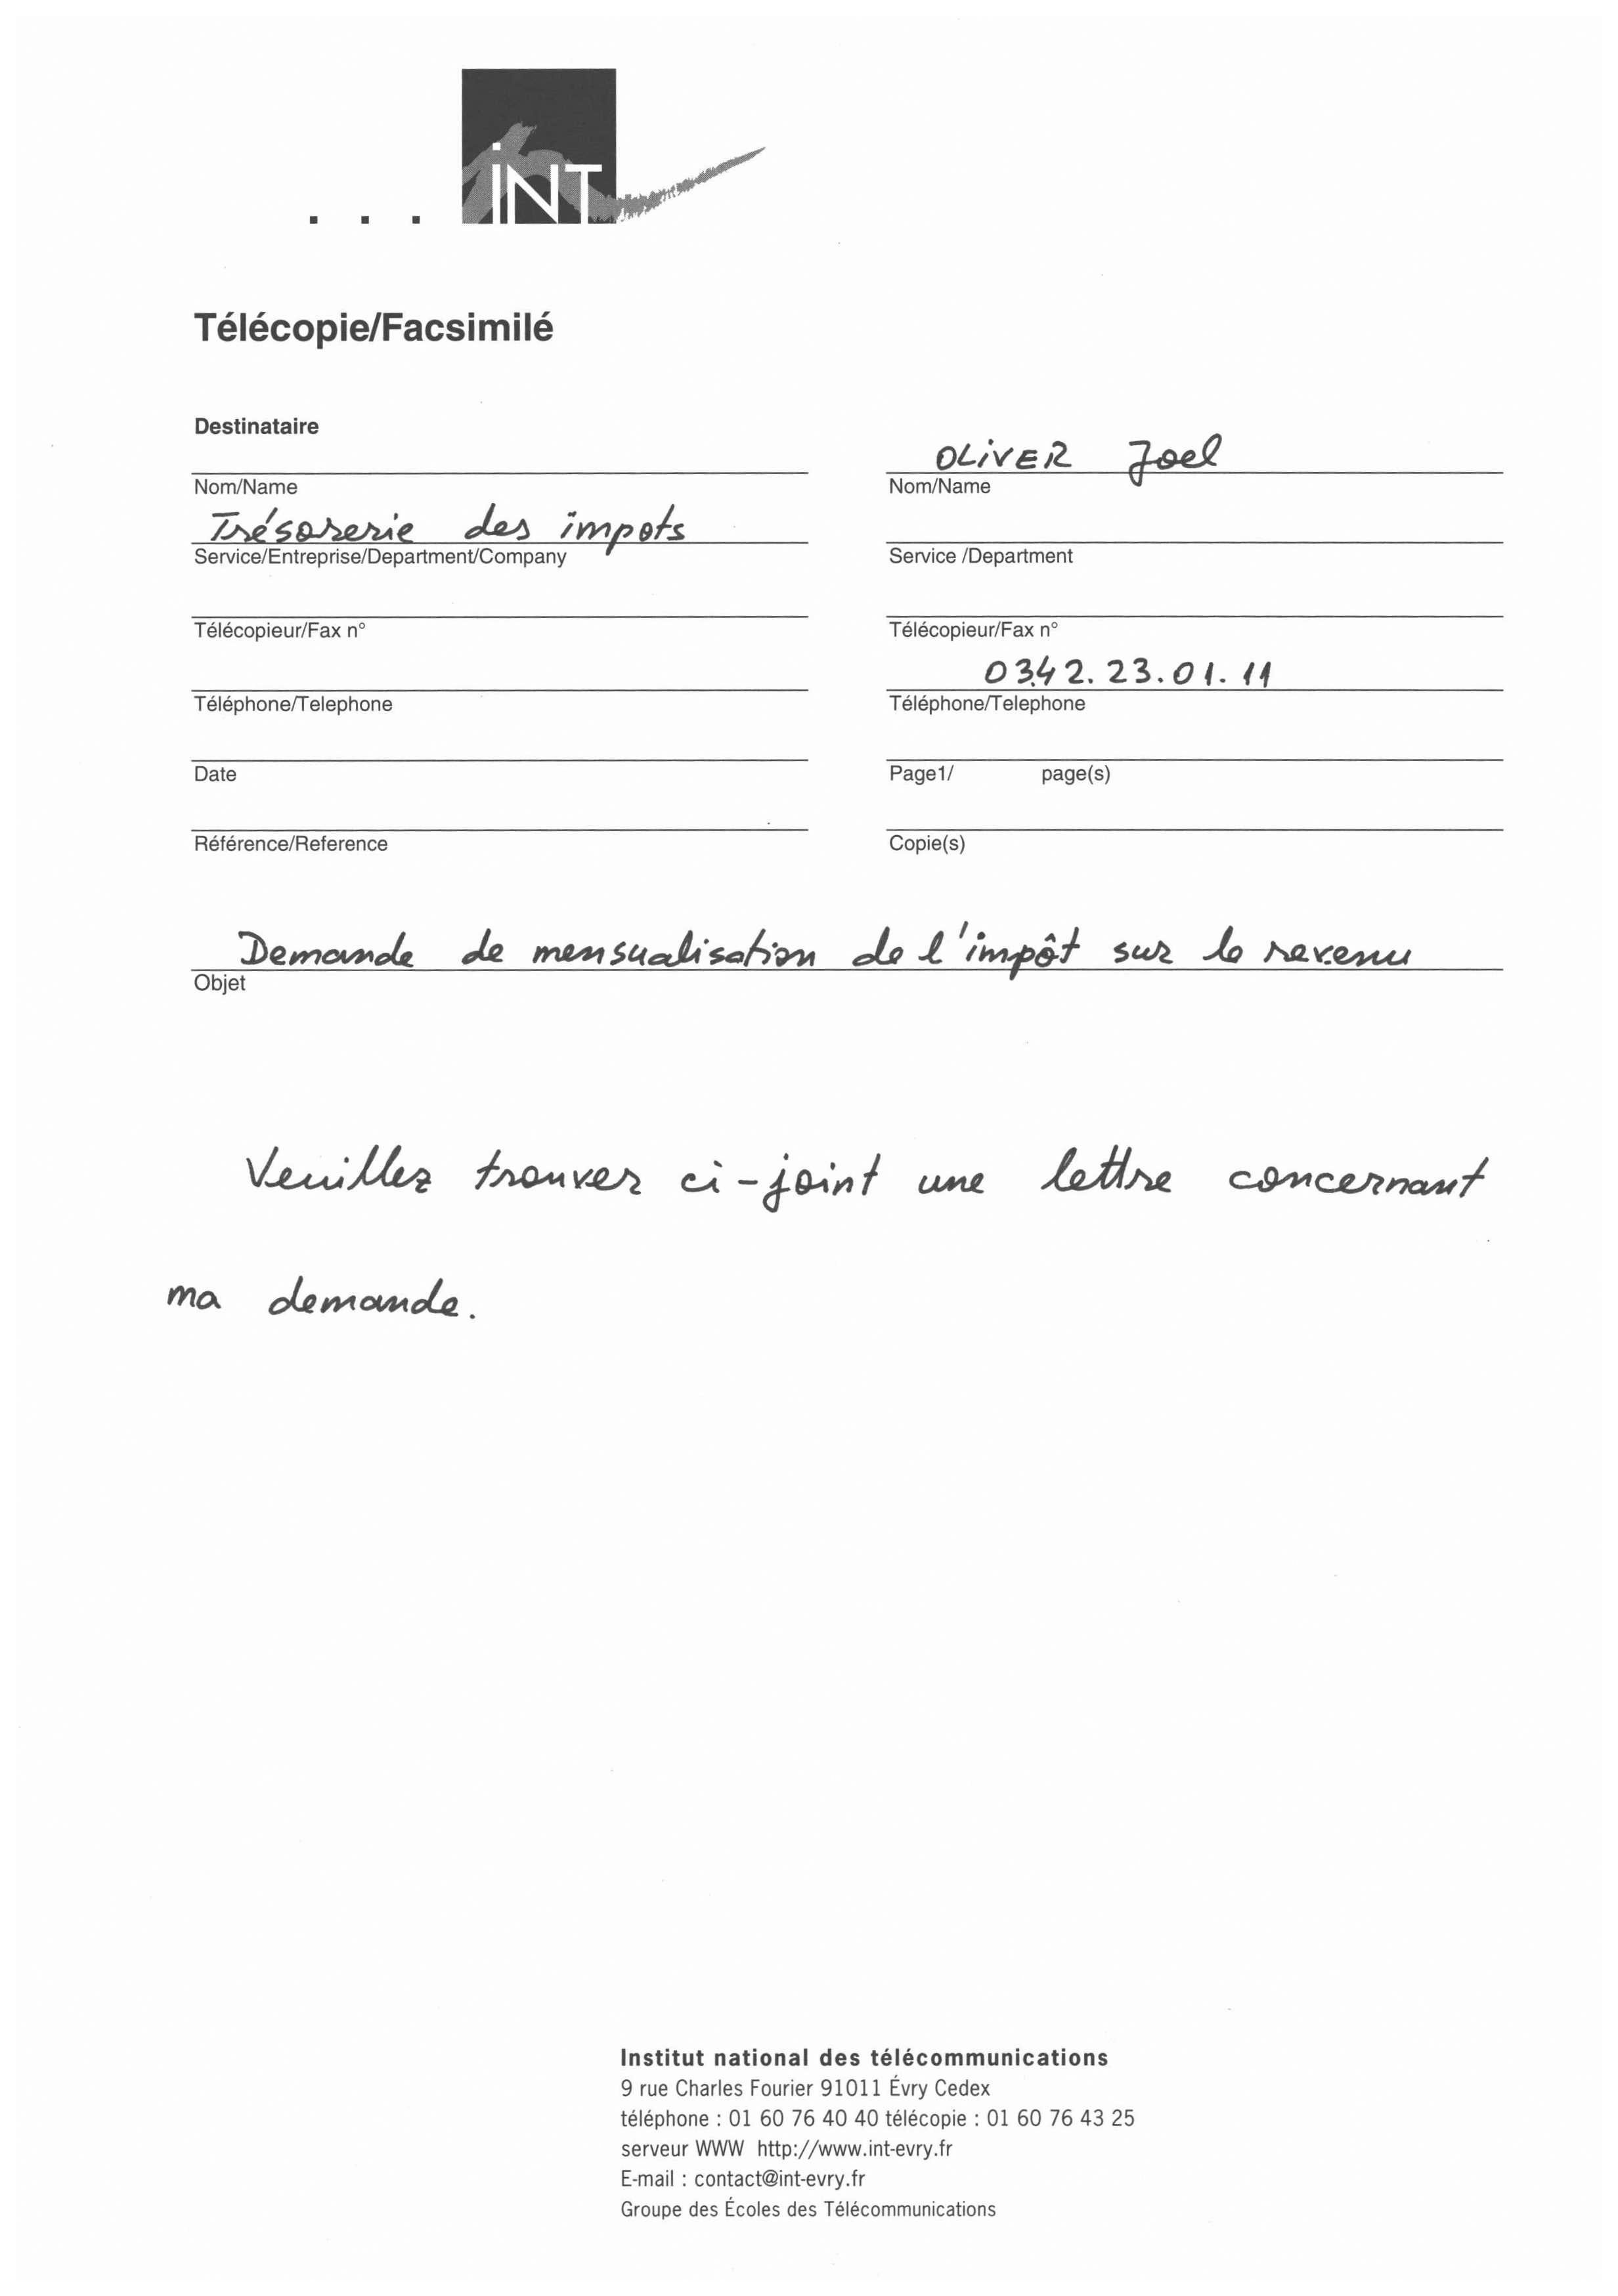 ... iNT
Télécopie/Facsimilé
Destinataire
Nom/Name
Trésorerie des impots
Service/Entreprise/Department/Company
Télécopieur/Fax n°
Téléphone/Telephone
Date
Référence/Reference
OLiVER Joel
Nom/Name
Service /Department
Télécopieur/Fax n°
03.42.23.01.11
Téléphone/Telephone
Page1/ page(s)
Copie(s)
Demande de mensualisation de l'impôt sur le revenu
Objet
Veuillez trouver ci-joint une lettre concernant
ma demande.
Institut national des télécommunications
9 rue Charles Fourier 91011 Évry Cedex
téléphone : 01 60 76 40 40 télécopie : 01 60 76 43 25
serveur WWW http://www.int-evry.fr
E-mail : contact@int-evry.fr
Groupe des Écoles des Télécommunications